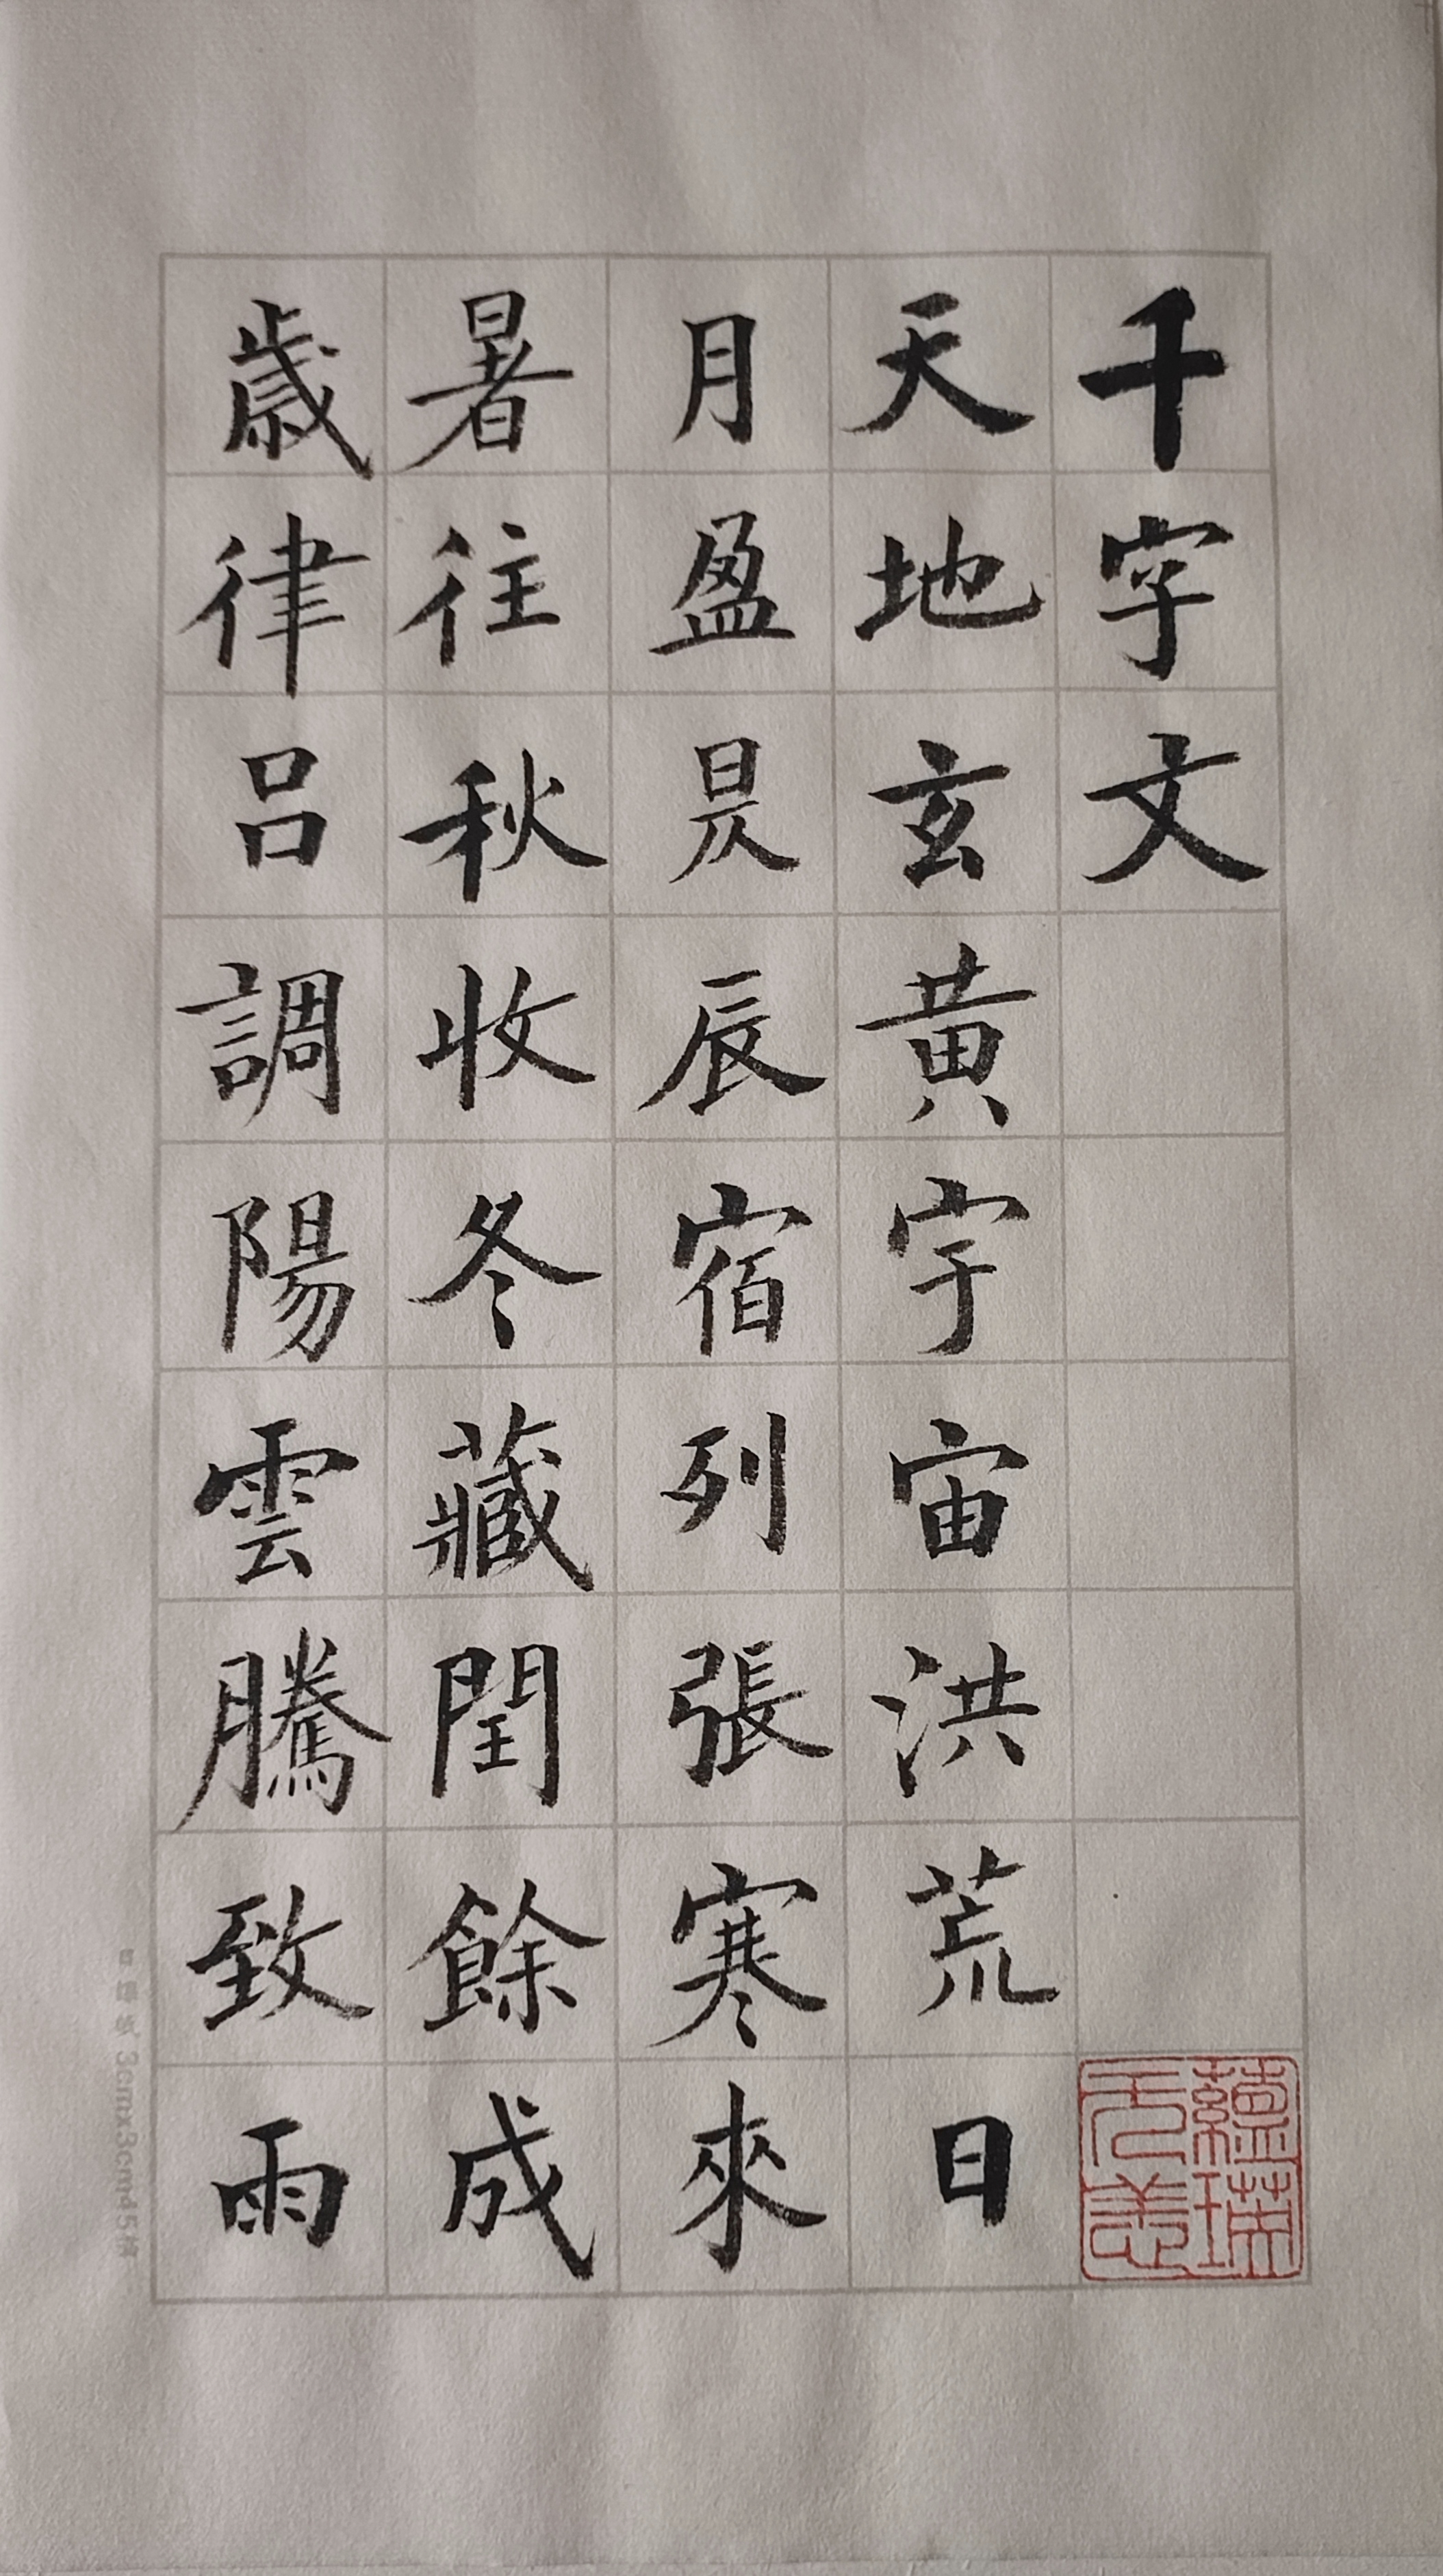 千字文
天地玄黄宇宙洪荒日
月盈昃辰宿列張寒來
暑往秋收冬藏閏餘成
歲律吕調陽雲騰致雨